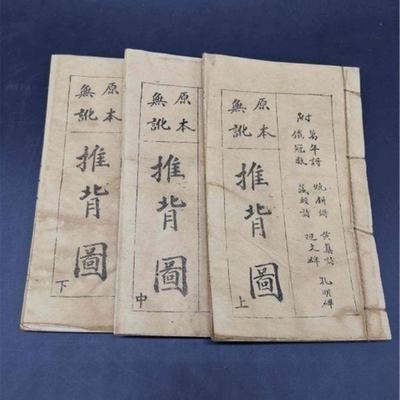 附
萬年謌
燒餅謌
黃蘗詩
孔明碑
鐵冠數
藏頭詩
原本
無訛
推背圖
上
原本
無訛
推背圖
中
原本
無訛
推背圖
下